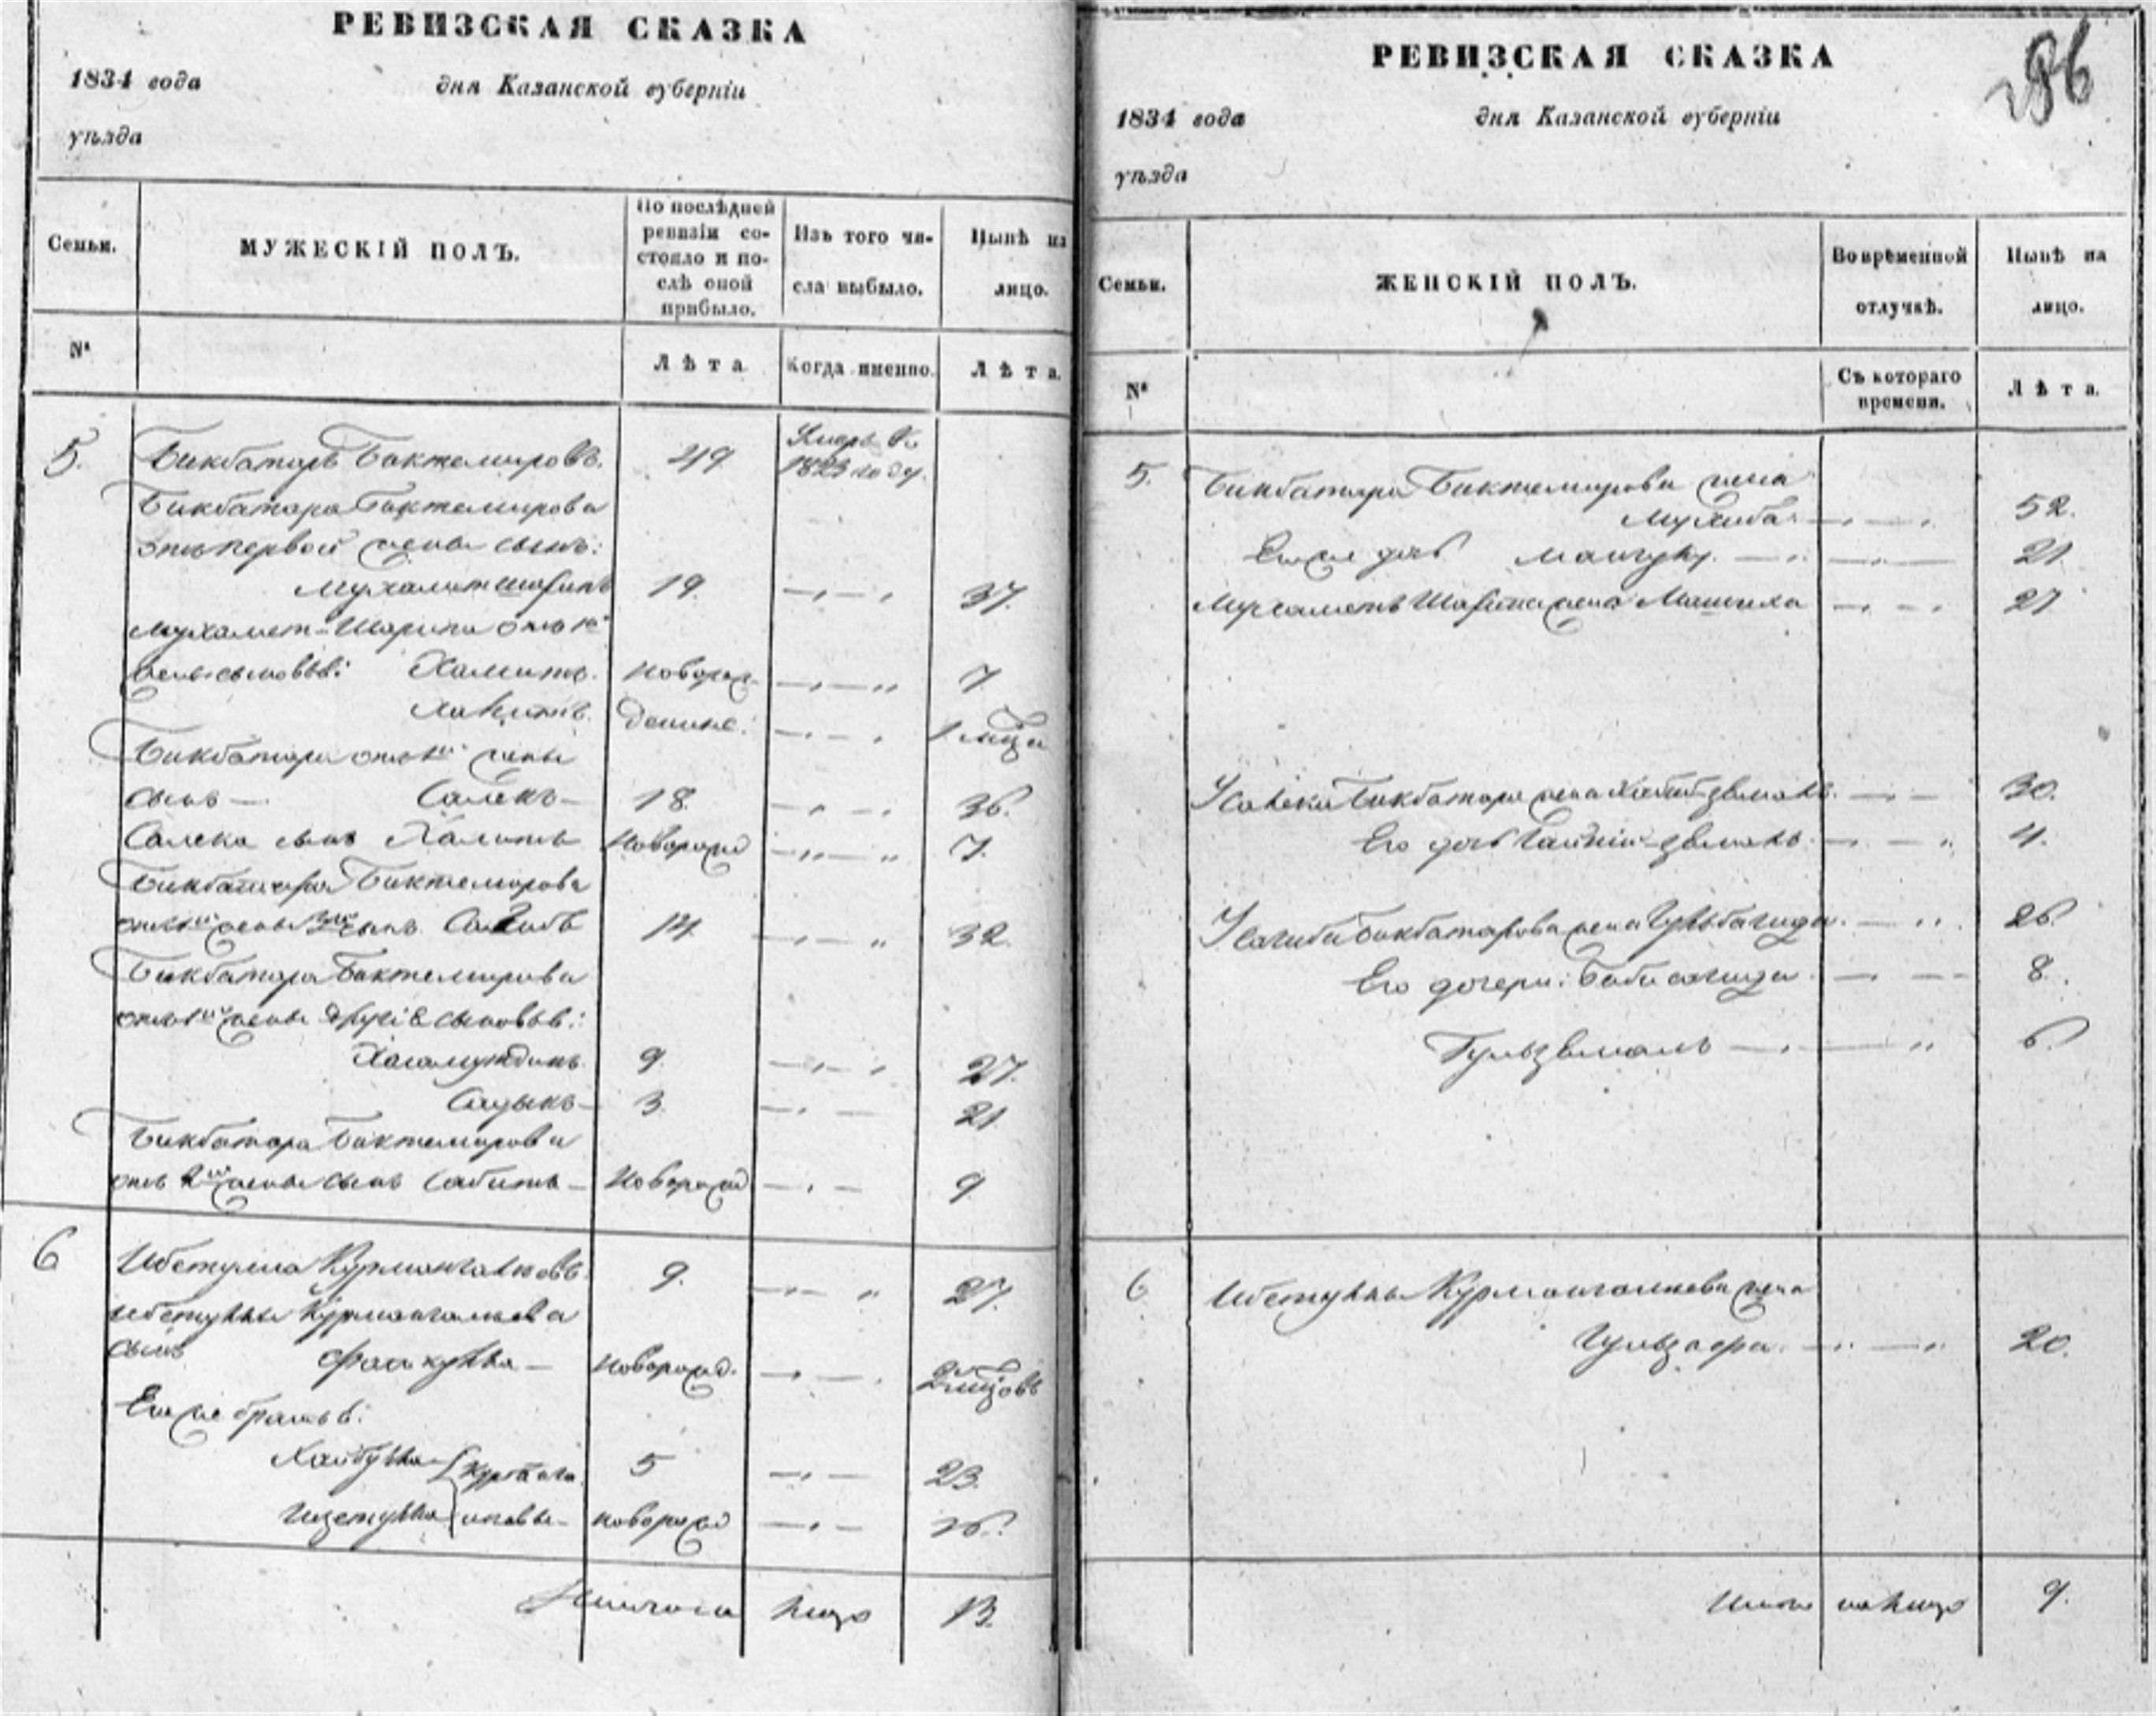 РЕВИЗСКАЯ СКАЗКА
1834 года дня Казанской губерніи
уѣзда
Семьи. МУЖЕСКІЙ ПОЛЪ. По послѣдней ревизіи состояло и послѣ оной прибыло. Изъ того числа выбыло. Нынѣ на лицо.
№ Лѣта Когда именно. Лѣта.
5. Бикбатаръ Бактемировъ. 49 Умеръ въ 1823 году.
Бикбатара Бактемирова
отъ первой жены сынъ:
Мухаметшарипъ 19. 37.
Мухамет-Шарипа отъ 1й
жены сыновья: Хамитъ. новорож- 7
Хавитъ. денные: 1 мца
Бикбатара отъ 1й жены
сынъ — Салекъ — 18 36.
Салека сынъ Халитъ Новорожд 7.
Бикбатара Бактемирова
отъ 1й жены 3й сынъ Сагибъ 14 32.
Бикбатара Бактемирова
отъ 1й жены другіе сыновья:
Хисамутдинъ 9. 27.
Садыкъ — 3. 21
Бикбатара Бактемирова
отъ 2й жены сынъ Сабитъ — Новорожд 9
6 Ибетулла Курмангалеевъ 9. 27.
Ибетуллы Курмангалеева
сынъ Фаткулла — новорожд. 2 мцовъ
Его же братья:
Хайбулла Курманга- 5 23.
Изетулла леевы — новорожд 16.
Итого на лицо 13.
РЕВИЗСКАЯ СКАЗКА
1834 года дня Казанской губерніи
уѣзда
Семьи. ЖЕНСКІЙ ПОЛЪ. Во временной отлучкѣ. Нынѣ на лицо.
№ Съ котораго времени. Лѣта.
5. Бикбатара Бактемирова жена
Мухиба 52.
Его же дочь 21
Мухаметъ Шарипа жена 27
У Салека Бикбатара жена 30.
Его дочь 4.
У Сагиба Бикбатарова жена Гульбагида 26.
Его дочери: Бибисагида 8.
Гульзямалъ 6.
6 Ибетуллы Курмангалеева жена
Гульзафа 20.
Итого на лицо 9.